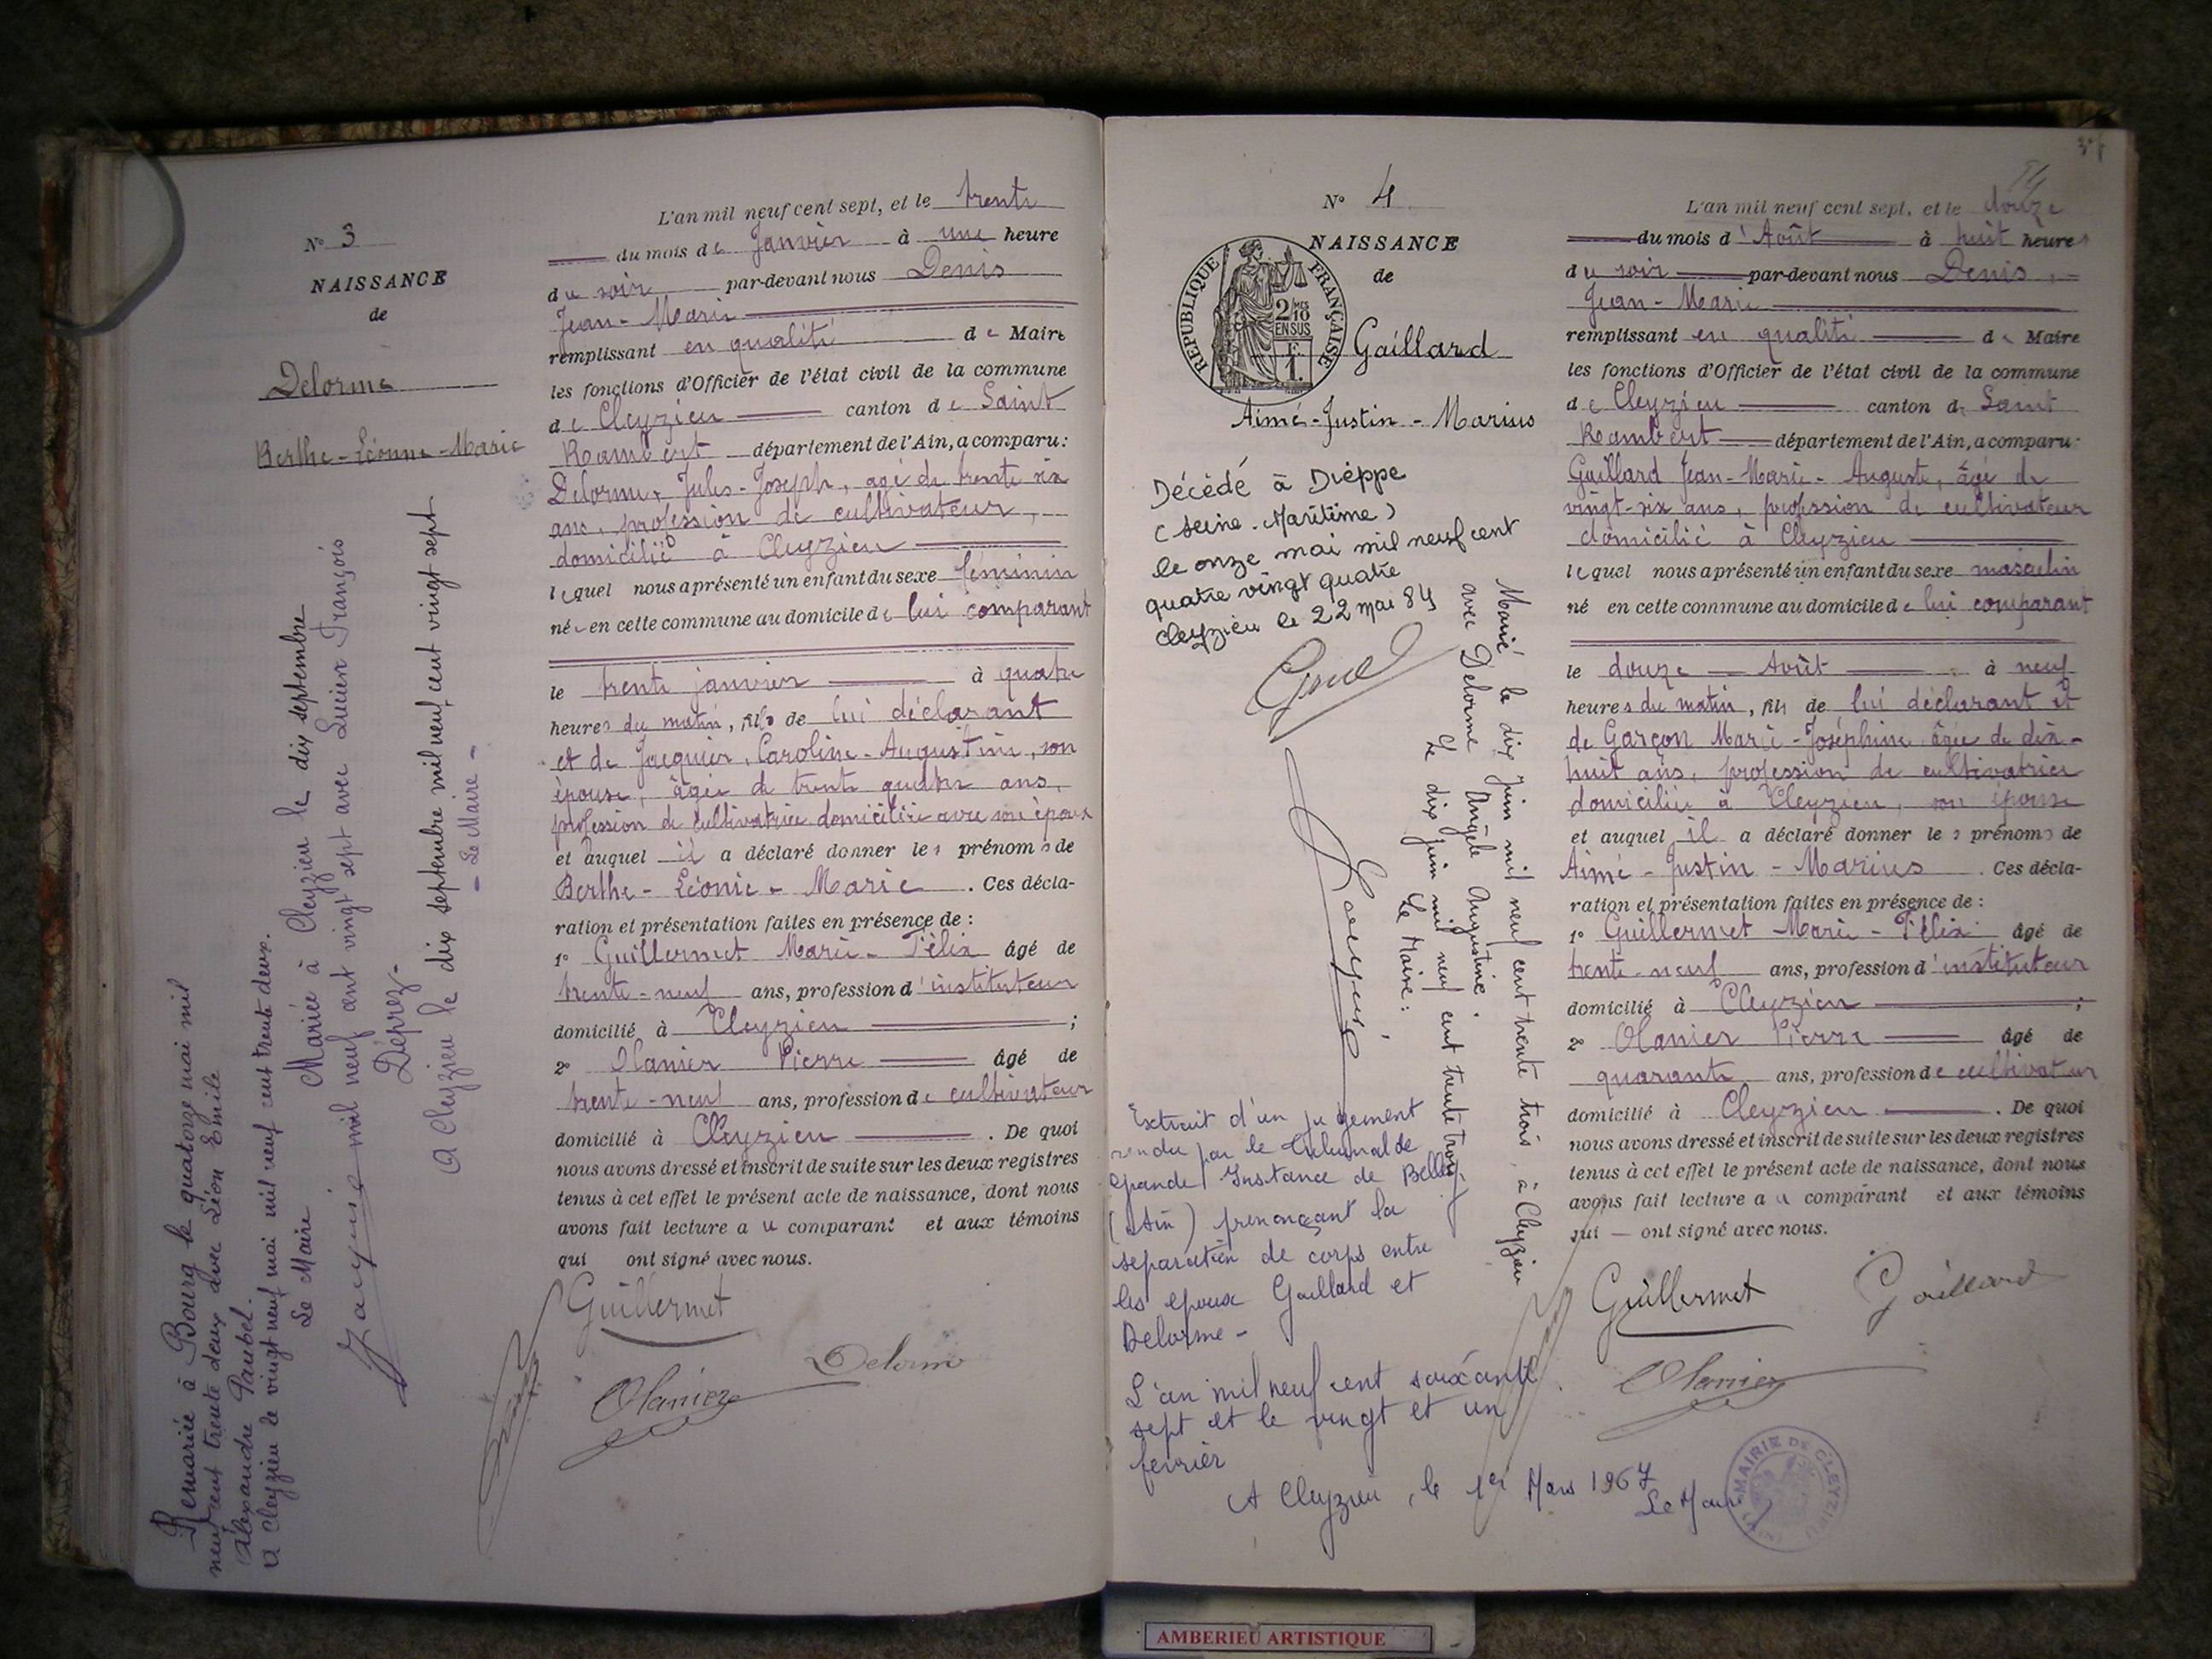 N° 3
NAISSANCE
de
Delorme
Berthe-Léonne-Marie
Mariée à Cleyzieu le dix septembre
mil neuf cent vingt sept avec Lucien François
Déprez-
A Cleyzieu le dix septembre mil neuf cent vingt sept
- Le Maire -
Remariée à Bourg le quatorze mai mil
neuf cent trente deux avec Léon Emile
Alexandre Paubel.
A Cleyzieu le vingt neuf mai mil neuf cent trente deux.
Le Maire
L'an mil neuf cent sept, et le trente
du mois de Janvier à une heure
du soir par-devant nous Denis
Jean-Marie
remplissant en qualité de Maire
les fonctions d'Officier de l'état civil de la commune
de Cleyzieu canton de Saint
Rambert département de l'Ain, a comparu:
Delorme, Jules-Joseph, agé de trente six
ans, profession de cultivateur,
domicilié à Cleyzieu
lequel nous a présenté un enfant du sexe féminin
née en cette commune au domicile de lui comparant
le trente janvier à quatre
heures du matin, fille de lui déclarant
et de Jacquier, Caroline-Augustine, son
épouse, âgée de trente quatre ans,
profession de cultivatrice domiciliée avec son époux
et auquel il a déclaré donner les prénoms de
Berthe-Léonie-Marie. Ces décla-
ration et présentation faites en présence de :
1° Guillermet Marie-Félix âgé de
trente-neuf ans, profession d'instituteur
domicilié à Cleyzieu ;
2° Olanier Pierre âgé de
trente-neuf ans, profession de cultivateur
domicilié à Cleyzieu . De quoi
nous avons dressé et inscrit de suite sur les deux registres
tenus à cet effet le présent acte de naissance, dont nous
avons fait lecture au comparant et aux témoins
qui ont signé avec nous.
Guillermet
Delorme
Olanier
N° 4
NAISSANCE
de
RÉPUBLIQUE FRANÇAISE
2 MES
10
EN SUS
F.
1.
Gaillard
Aimé-Justin-Marius
Décédé à Dieppe
(Seine-Maritime)
le onze mai mil neuf cent
quatre vingt quatre
Cleyzieu le 22 mai 84
Marié le dix juin mil neuf cent trente trois à Cleyzieu
avec Delorme Angèle Augustine.
Le dix juin mil neuf cent trente trois
Le Maire:
Extrait d'un jugement
rendu par le tribunal de
grande Instance de Belley
(Ain) prononçant la
séparation de corps entre
les époux Gaillard et
Delorme -
L'an mil neuf cent soixante
sept et le vingt et un
février
A Cleyzieu, le 1er Mars 1967
Le Maire
MAIRIE DE CLEYZIEU
L'an mil neuf cent sept, et le douze
du mois d'Août à huit heures
du soir par-devant nous Denis,
Jean-Marie
remplissant en qualité de Maire
les fonctions d'Officier de l'état civil de la commune
de Cleyzieu canton de Saint
Rambert département de l'Ain, a comparu:
Gaillard Jean-Marie-Auguste, âgé de
vingt-six ans, profession de cultivateur
domicilié à Cleyzieu
lequel nous a présenté un enfant du sexe masculin
né en cette commune au domicile de lui comparant
le douze Août à neuf
heures du matin, fils de lui déclarant et
de Garçon Marie-Joséphine âgée de dix-
huit ans, profession de cultivatrice
domiciliée à Cleyzieu, son épouse
et auquel il a déclaré donner les prénoms de
Aimé-Justin-Marius. Ces décla-
ration et présentation faites en présence de :
1° Guillermet Marie-Félix âgé de
trente-neuf ans, profession d'instituteur
domicilié à Cleyzieu ;
2° Olanier Pierre âgé de
quarante ans, profession de cultivateur
domicilié à Cleyzieu . De quoi
nous avons dressé et inscrit de suite sur les deux registres
tenus à cet effet le présent acte de naissance, dont nous
avons fait lecture au comparant et aux témoins
qui ont signé avec nous.
Guillermet
Gaillard
Olanier
AMBERIEU ARTISTIQUE